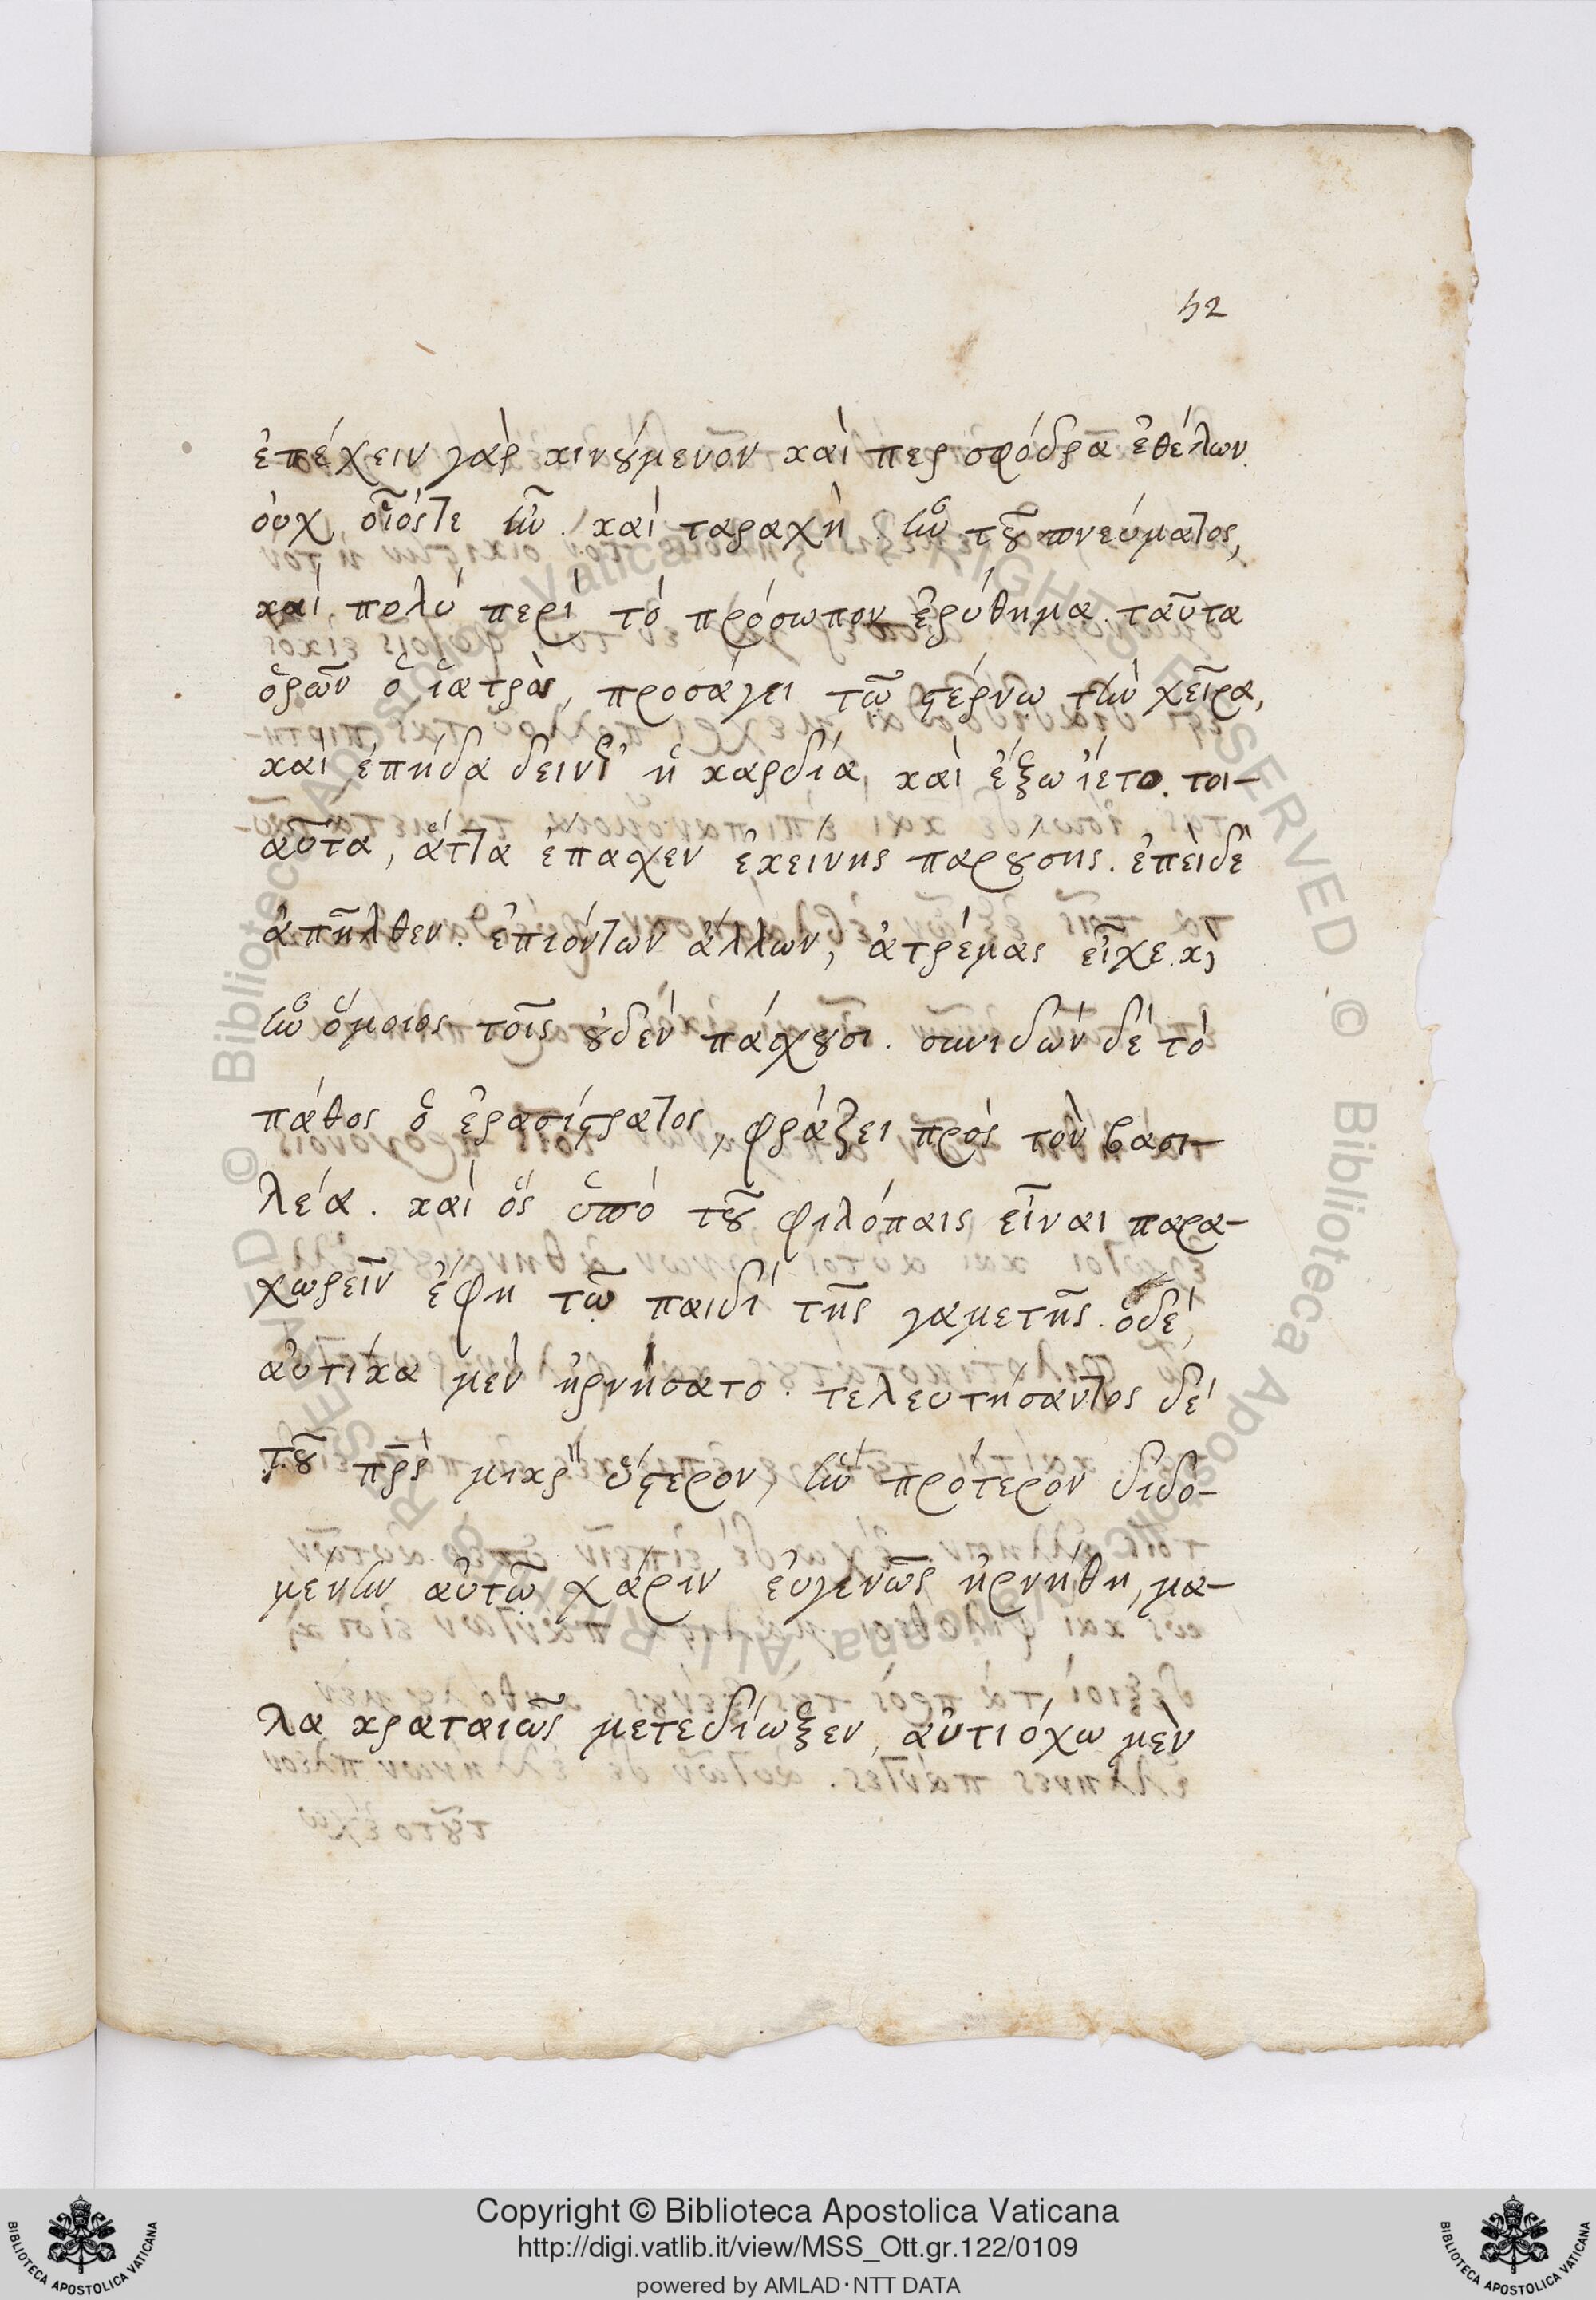 52
ἐπέχειν γὰρ κινούμενον καὶ περ σφόδρα ἐθέλων.
οὐχ οἷός τε ἦν. καὶ ταραχὴ ἦν τοῦ πνεύματος,
καὶ πολύ περὶ τὸ πρόσωπον ἐρύθημα. ταῦτα
ὁρῶν ὁ ἰατρὸς, προσάγει τῶ στέρνω τὴν χεῖρα,
καὶ ἐπήδα ἡ καρδία, καὶ ἔξω ἵετο. τοι-
αῦτα, ἄττα ἔπασχεν ἐκείνης παρούσης. ἐπεὶ δὲ
ἀπῆλθεν. ἐπιόντων ἄλλων, ἀτρέμας εἶχε. κὶ
ἦν ὅμοιος τοῖς οὐδὲν πάσχουσι. συνιδὼν δὲ τὸ
πάθος ὁ ἐρασίστρατος, φράζει πρὸς τὸν βασι-
λέα. καὶ ὃς ὑπὸ τοῦ φιλόπαις εἶναι παρα-
χωρεῖν ἔφη τῶ παιδὶ τῆς γαμετῆς. ὁ δὲ,
αὐτίκα μὲν ἠρνήσατο. τελευτήσαντος δὲ
τοῦ πρς μικρ ὕστερον, ἣν πρότερον διδο-
μένην αὐτῶ χάριν εὐγενῶς ἠρνήθη, μά-
λα κραταιῶς μετεδίωξεν, ἀντιόχω μὲν
Copyright © Biblioteca Apostolica Vaticana
http://digi.vatlib.it/view/MSS_Ott.gr.122/0109
powered by AMLAD·NTT DATA